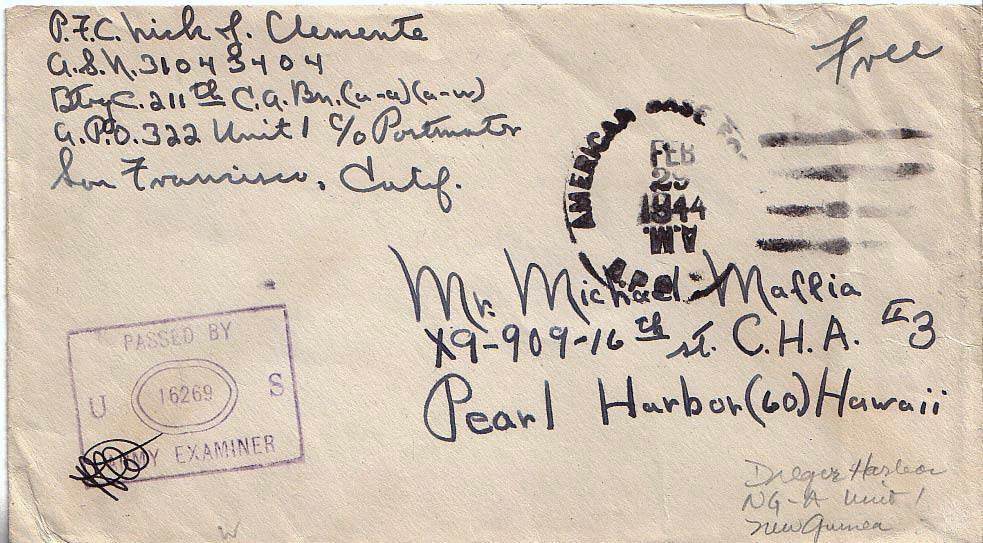 P.F.C. Nick J. Clemente
A.S.N. 31043404
Btry C. 211th C.A. Bn. (a-a) (a-w)
A.P.O. 322 Unit 1 c/o Postmaster
San Francisco, Calif.
Free
AMERICAN BASE
FEB
1944
A.M.
A.P.O.
Mr. Michael Maffia
X9-909-16th st. C.H.A. #3
Pearl Harbor (60) Hawaii
PASSED BY
U 16269 S
ARMY EXAMINER
Dreger Harbor
NG-A Unit 1
New Guinea
W